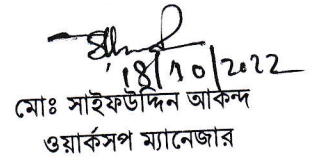 18/10/2022
মোঃ সাইফউদ্দিন আকন্দ
ওয়ার্কসপ ম্যানেজার